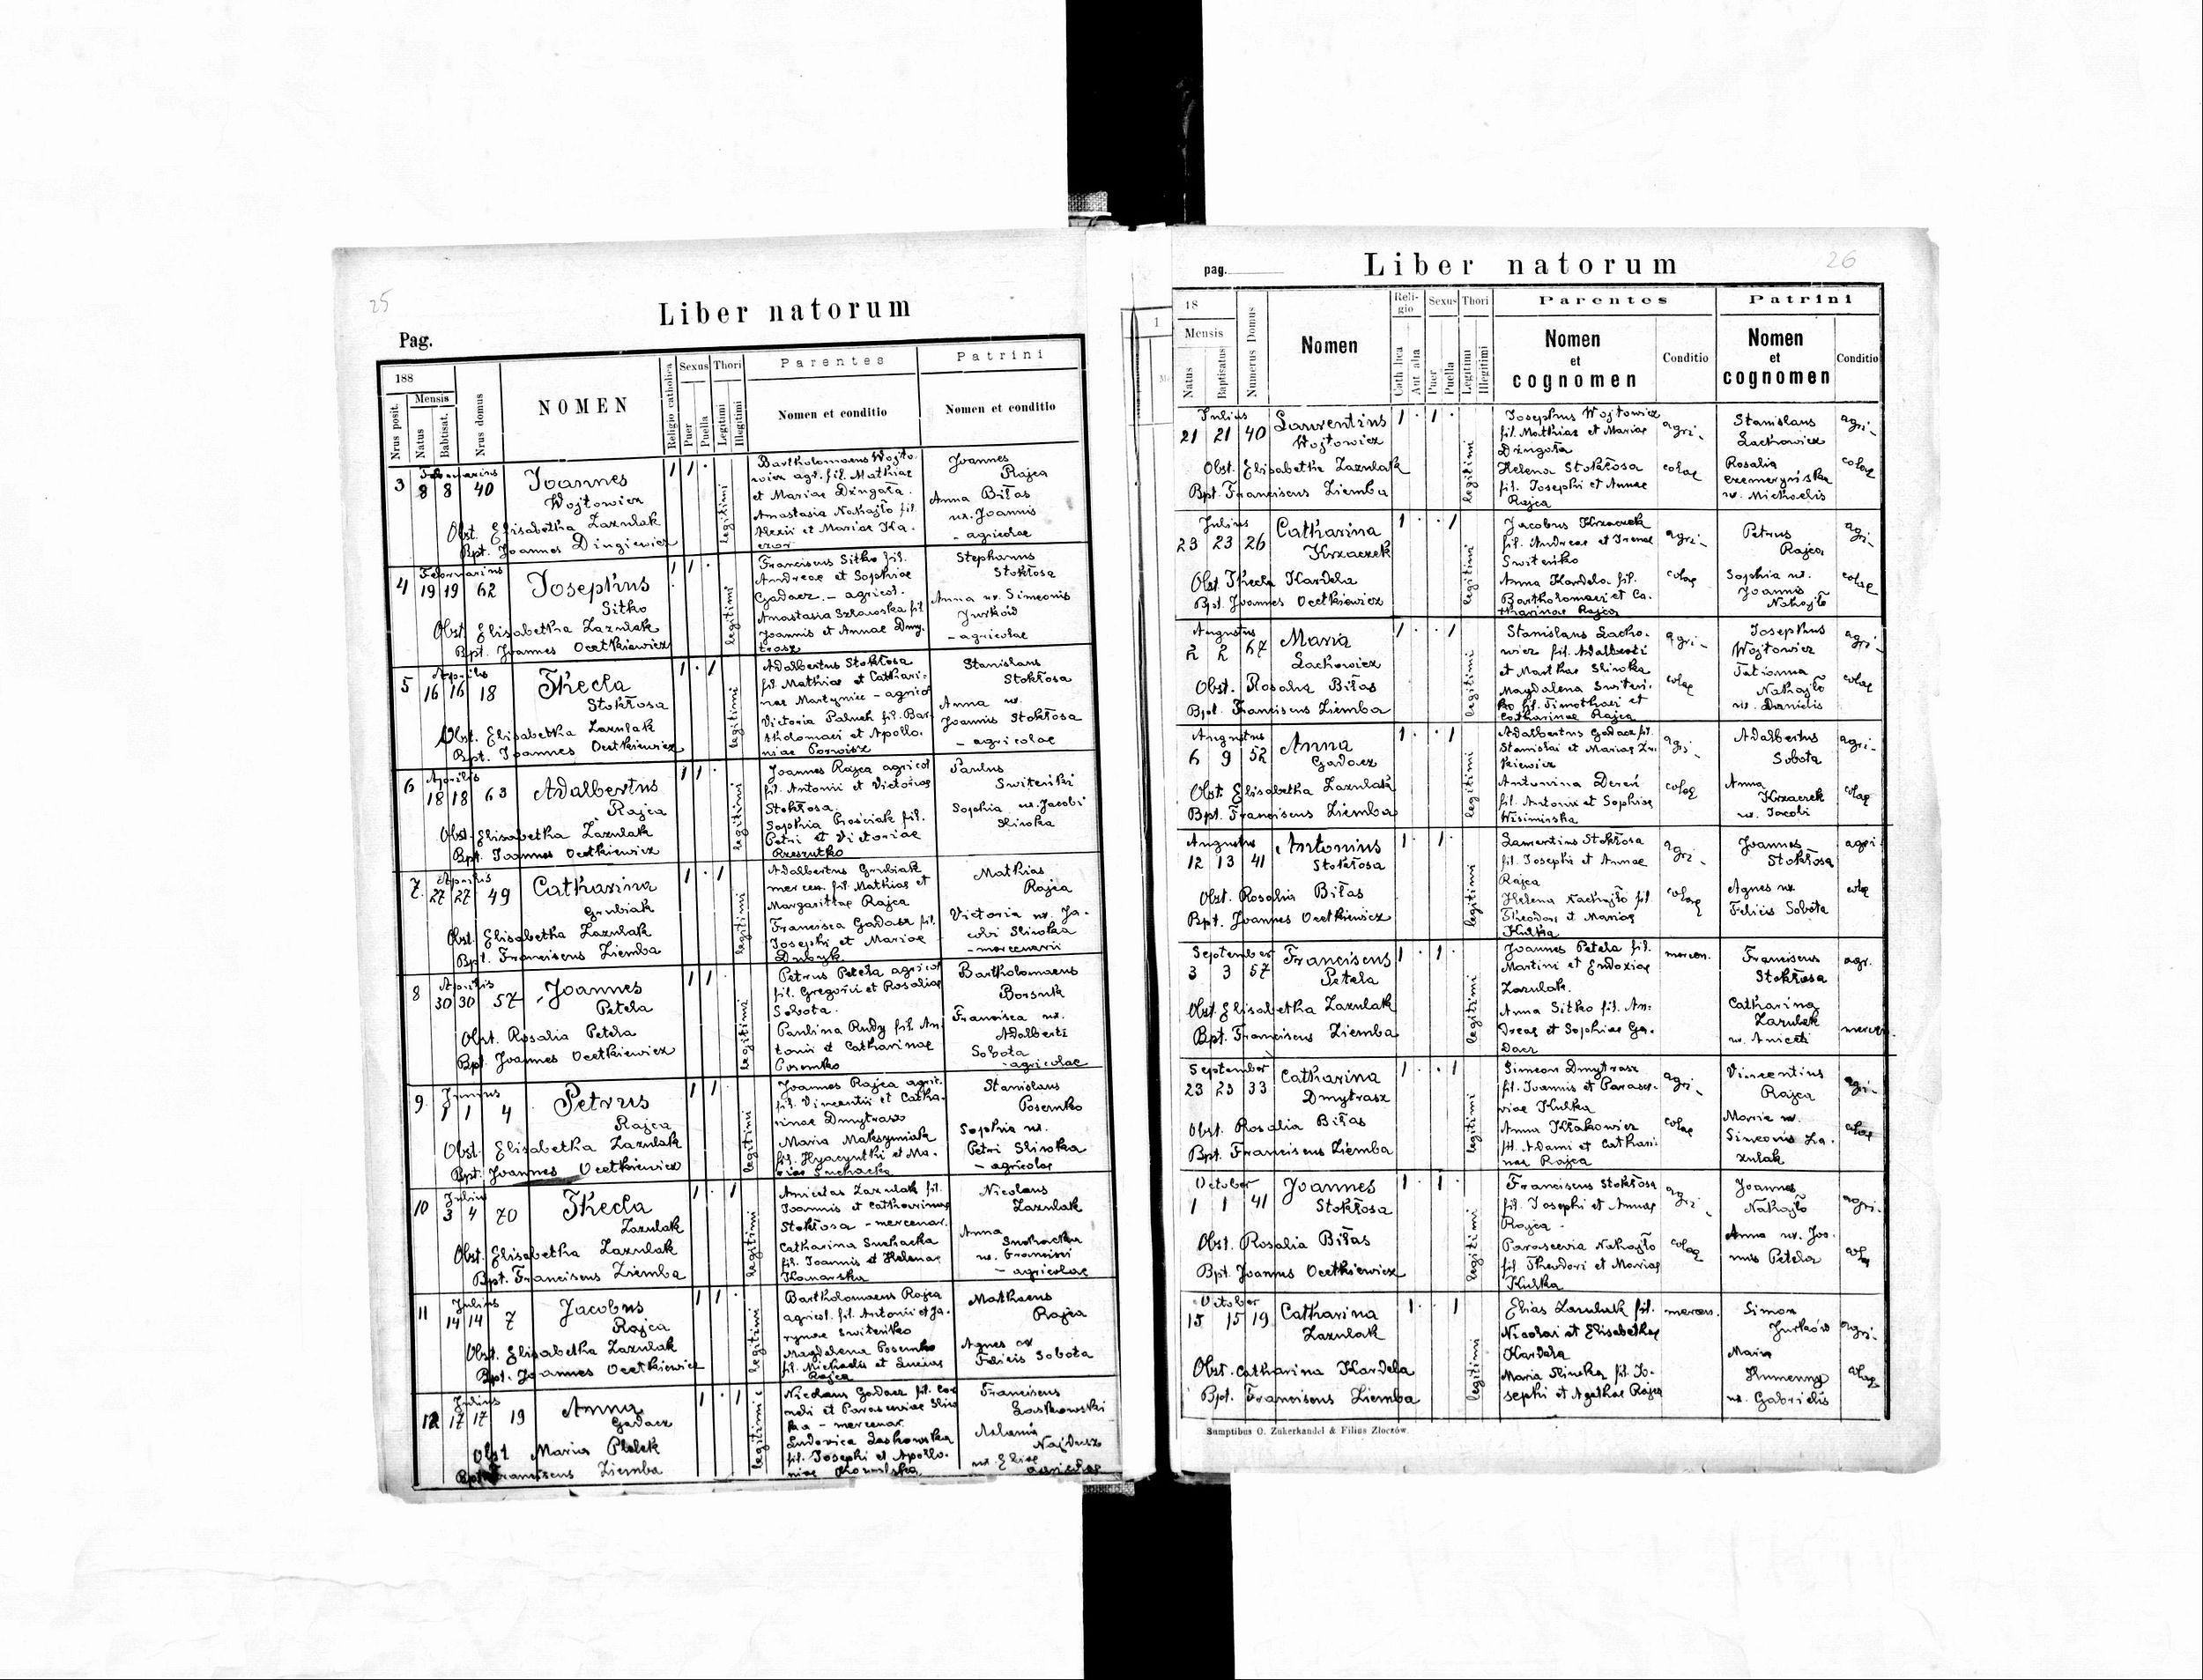 25
Liber natorum
Pag.
188
Mensis
Nrus posit.
Natus
Babtisat.
Nrus domus
NOMEN
Religio catholica
Sexus
Puer
Puella
Thori
Legitimi
Illegitimi
Parentes
Nomen et conditio
Patrini
Nomen et conditio
3 Februarius
8 8 40
Joannes
Wojtowicz
Obst. Elisabetha Zazulak
Bpt. Joannes Dingiewicz
1 1 .
legitimi
Bartholomaeus Wojto-
wicz agr. fil. Mathiae
et Mariae Dzugała.
Anastasia Nahajło fil.
Alexii et Mariae Ka-
czor
Joannes
Rajca
Anna Biłas
ux. Joannis
- agricolae
4 Februarius
19 19 62
Josephus
Sitko
Obst. Elisabetha Zazulak
Bpt. Joannes Ocetkiewicz
1 1 .
legitimi
Franciscus Sitko fil.
Andreae et Sophiae
Gadacz. - agricol.
Anastasia fil
Joannis et Annae Dmy-
trasz
Stephanus
Stokłosa
Anna ux. Simeonis
Jurków
- agricolae
5 Aprilis
16 16 18
Thecla
Stokłosa
Obst. Elisabetha Zazulak
Bpt. Joannes Ocetkiewicz
1 . 1
legitimi
Adalbertus Stokłosa
fil. Mathiae et Cathari-
nae Martyniec - agricol
Victoria Paluch fil. Bar-
tholomaei et Apollo-
niae
Stanislaus
Stokłosa
Anna ux.
Joannis Stokłosa
- agricolae
6 Aprilis
18 18 63
Adalbertus
Rajca
Obst. Elisabetha Zazulak
Bpt. Joannes Ocetkiewicz
1 1 .
legitimi
Joannes Rajca agricol
fil. Antonii et Victoriae
Stokłosa.
Sophia Prościak fil.
Petri et Victoriae
Rzeszutko
Paulus
Switeńki
Sophia ux. Jacobi
Sliwka
7. Aprilis
27 27 49
Catharina
Grubiak
Obst. Elisabetha Zazulak
Bpt. Franciscus Ziemba
1 . 1
legitimi
Adalbertus Grubiak
mercen. fil. Mathiae et
Margarittae Rajca
Francisca Gadacz fil.
Josephi et Mariae
Dubyk
Mathias
Rajca
Victoria ux. Ja-
cobi Sliwka
- mercenarii
8 Aprilis
30 30 57
Joannes
Petela
Obst. Rosalia Petela
Bpt. Joannes Ocetkiewicz
1 1
legitimi
Petrus Petela agricol
fil. Gregorii et Rosaliae
Sobota.
Paulina Rudy fil. An-
tonii et Catharinae
Bartholomaeus
Borsuk
Francisca ux.
Adalberti
Sobota
- agricolae
9. Junius
1 1 4
Petrus
Rajca
Obst. Elisabetha Zazulak
Bpt. Joannes Ocetkiewicz
1 1 .
legitimi
Joannes Rajca agric.
fil. Vincentii et Catha-
rinae Dmytrasz
Maria Maksymiak
fil. Hyacynthi et Ma-
riae Suchacka
Stanislaus
Posemko
Sophia ux.
Petri Sliwka
- agricolae
10 Julius
3 4 70
Thecla
Zazulak
Obst. Elisabetha Zazulak
Bpt. Franciscus Ziemba
1 . 1
legitimi
Anicetus Zazulak fil.
Joannis et Catharinae
Stokłosa - mercenar.
Catharina Suchacka
fil. Joannis et Helenae
Komarska
Nicolaus
Zazulak
Anna
Suchacka
ux. Francisci
- agricolae
11 Julius
14 14 7
Jacobus
Rajca
Obst. Elisabetha Zazulak
Bpt. Joannes Ocetkiewicz
1 1 .
legitimi
Bartholomaeus Rajca
agricol. fil. Antonii et Ja-
rynae Switeńko
Magdalena Posemko
fil. Michaelis et Luciae
Rajca
Mathaeus
Rajca
Agnes ux
Felicis Sobota
12 Julius
17 17 19
Anna
Gadacz
Obst Maria Ptolek
Bpt. Franciscus Ziemba
1 . 1
legitimi
Nicolaus Gadacz fil. Cor-
nelii et Parasceviae Sliw
ka - mercenar.
Ludovica Laskowska
fil. Josephi et Apollo-
niae
Franciscus
Laskowski
Melania
Najdusz
ux. Eliae
agricolae
26
pag.
Liber natorum
18
Mensis
Natus
Baptisatus
Numerus Domus
Nomen
Religio
Catholica
Aut alia
Sexus
Puer
Puella
Thori
Legitimi
Illegitimi
Parentes
Nomen
et
cognomen
Conditio
Patrini
Nomen
et
cognomen
Conditio
Julius
21 21 40
Laurentius
Wojtowicz
Obst. Elisabetha Zazulak
Bpt. Franciscus Ziemba
1 . 1 .
legitimi
Josephus Wojtowicz
fil. Mathiae et Mariae
Dzugała
Helena Stokłosa
fil. Josephi et Annae
Rajca
agri-
colae
Stanislaus
Lachowicz
Rosalia
Czemeryńska
ux. Michaelis
agri-
colae
Julius
23 23 26
Catharina
Krzaczek
Obst. Thecla Kardela
Bpt. Joannes Ocetkiewicz
1 . . 1
legitimi
Jacobus Krzaczek
fil. Andreae et Irenae
Switeńko
Anna Kardela fil.
Bartholomaei et Ca-
tharinae Rajca
agri-
colae
Petrus
Rajca
Sophia ux.
Joannis
Nahajło
agri-
colae
Augustus
2 2 67
Maria
Lachowicz
Obst. Rosalia Biłas
Bpt. Franciscus Ziemba
1 . . 1
legitimi
Stanislaus Lacho-
wicz fil. Adalberti
et Marthae Sliwka
Magdalena Switeń-
ko fil. Timothaei et
Catharinae Rajca
agri-
colae
Josephus
Wojtowicz
Tatianna
Nahajło
ux. Danielis
agri-
colae
Augustus
6 9 52
Anna
Gadacz
Obst. Elisabetha Zazulak
Bpt. Franciscus Ziemba
1 . . 1
legitimi
Adalbertus Gadacz fil.
Stanislai et Mariae Żu-
kiewicz
Antonina Dereń
fil. Antonii et Sophiae
Wisimirska
agri-
colae
Adalbertus
Sobota
Anna
Krzaczek
ux. Jacobi
agri-
colae
Augustus
12 13 41
Antonius
Stokłosa
Obst. Rosalia Biłas
Bpt. Joannes Ocetkiewicz
1 . 1 .
legitimi
Laurentius Stokłosa
fil. Josephi et Annae
Rajca
Helena Nachajło fil
Theodori et Mariae
Kulka
agri-
colae
Joannes
Stokłosa
Agnes ux
Felicis Sobota
agri-
colae
September
3 3 57
Franciscus
Petela
Obst. Elisabetha Zazulak
Bpt. Franciscus Ziemba
1 . 1 .
legitimi
Joannes Petela fil.
Martini et Eudoxiae
Zazulak.
Anna Sitko fil. An-
dreae et Sophiae Ga-
dacz
mercen.
Franciscus
Stokłosa
Catharina
Zazulak
ux. Aniceti
agr.
mercen.
September
23 23 33
Catharina
Dmytrasz
Obst. Rosalia Biłas
Bpt. Franciscus Ziemba
1 . . 1
legitimi
Simeon Dmytrasz
fil. Joannis et Parasce-
viae Kulka
Anna Krakowicz
fil. Adami et Cathari-
nae Rajca
agri-
colae
Vincentius
Rajca
Maria ux.
Simeonis Za-
zulak
agri-
colae
October
1 1 41
Joannes
Stokłosa
Obst. Rosalia Biłas
Bpt. Joannes Ocetkiewicz
1 . 1 .
legitimi
Franciscus Stokłosa
fil. Josephi et Annae
Rajca -
Parascevia Nahajło
fil. Theodori et Mariae
Kulka
agri-
colae
Joannes
Nahajło
Anna ux. Joa-
nnis Petela
agri-
colae
October
15 15 19
Catharina
Zazulak
Obst. Catharina Kardela
Bpt. Franciscus Ziemba
1 . . 1
legitimi
Elias Zazulak fil.
Nicolai et Elisabethae
Kardela
Maria Sliwka fil. Jo-
sephi et Agathae Rajca
mercen.
Simon
Jurków
Maria
Humenny
ux. Gabrielis
agri-
colae
Sumptibus O. Zukerkandel & Filius Złoczów.